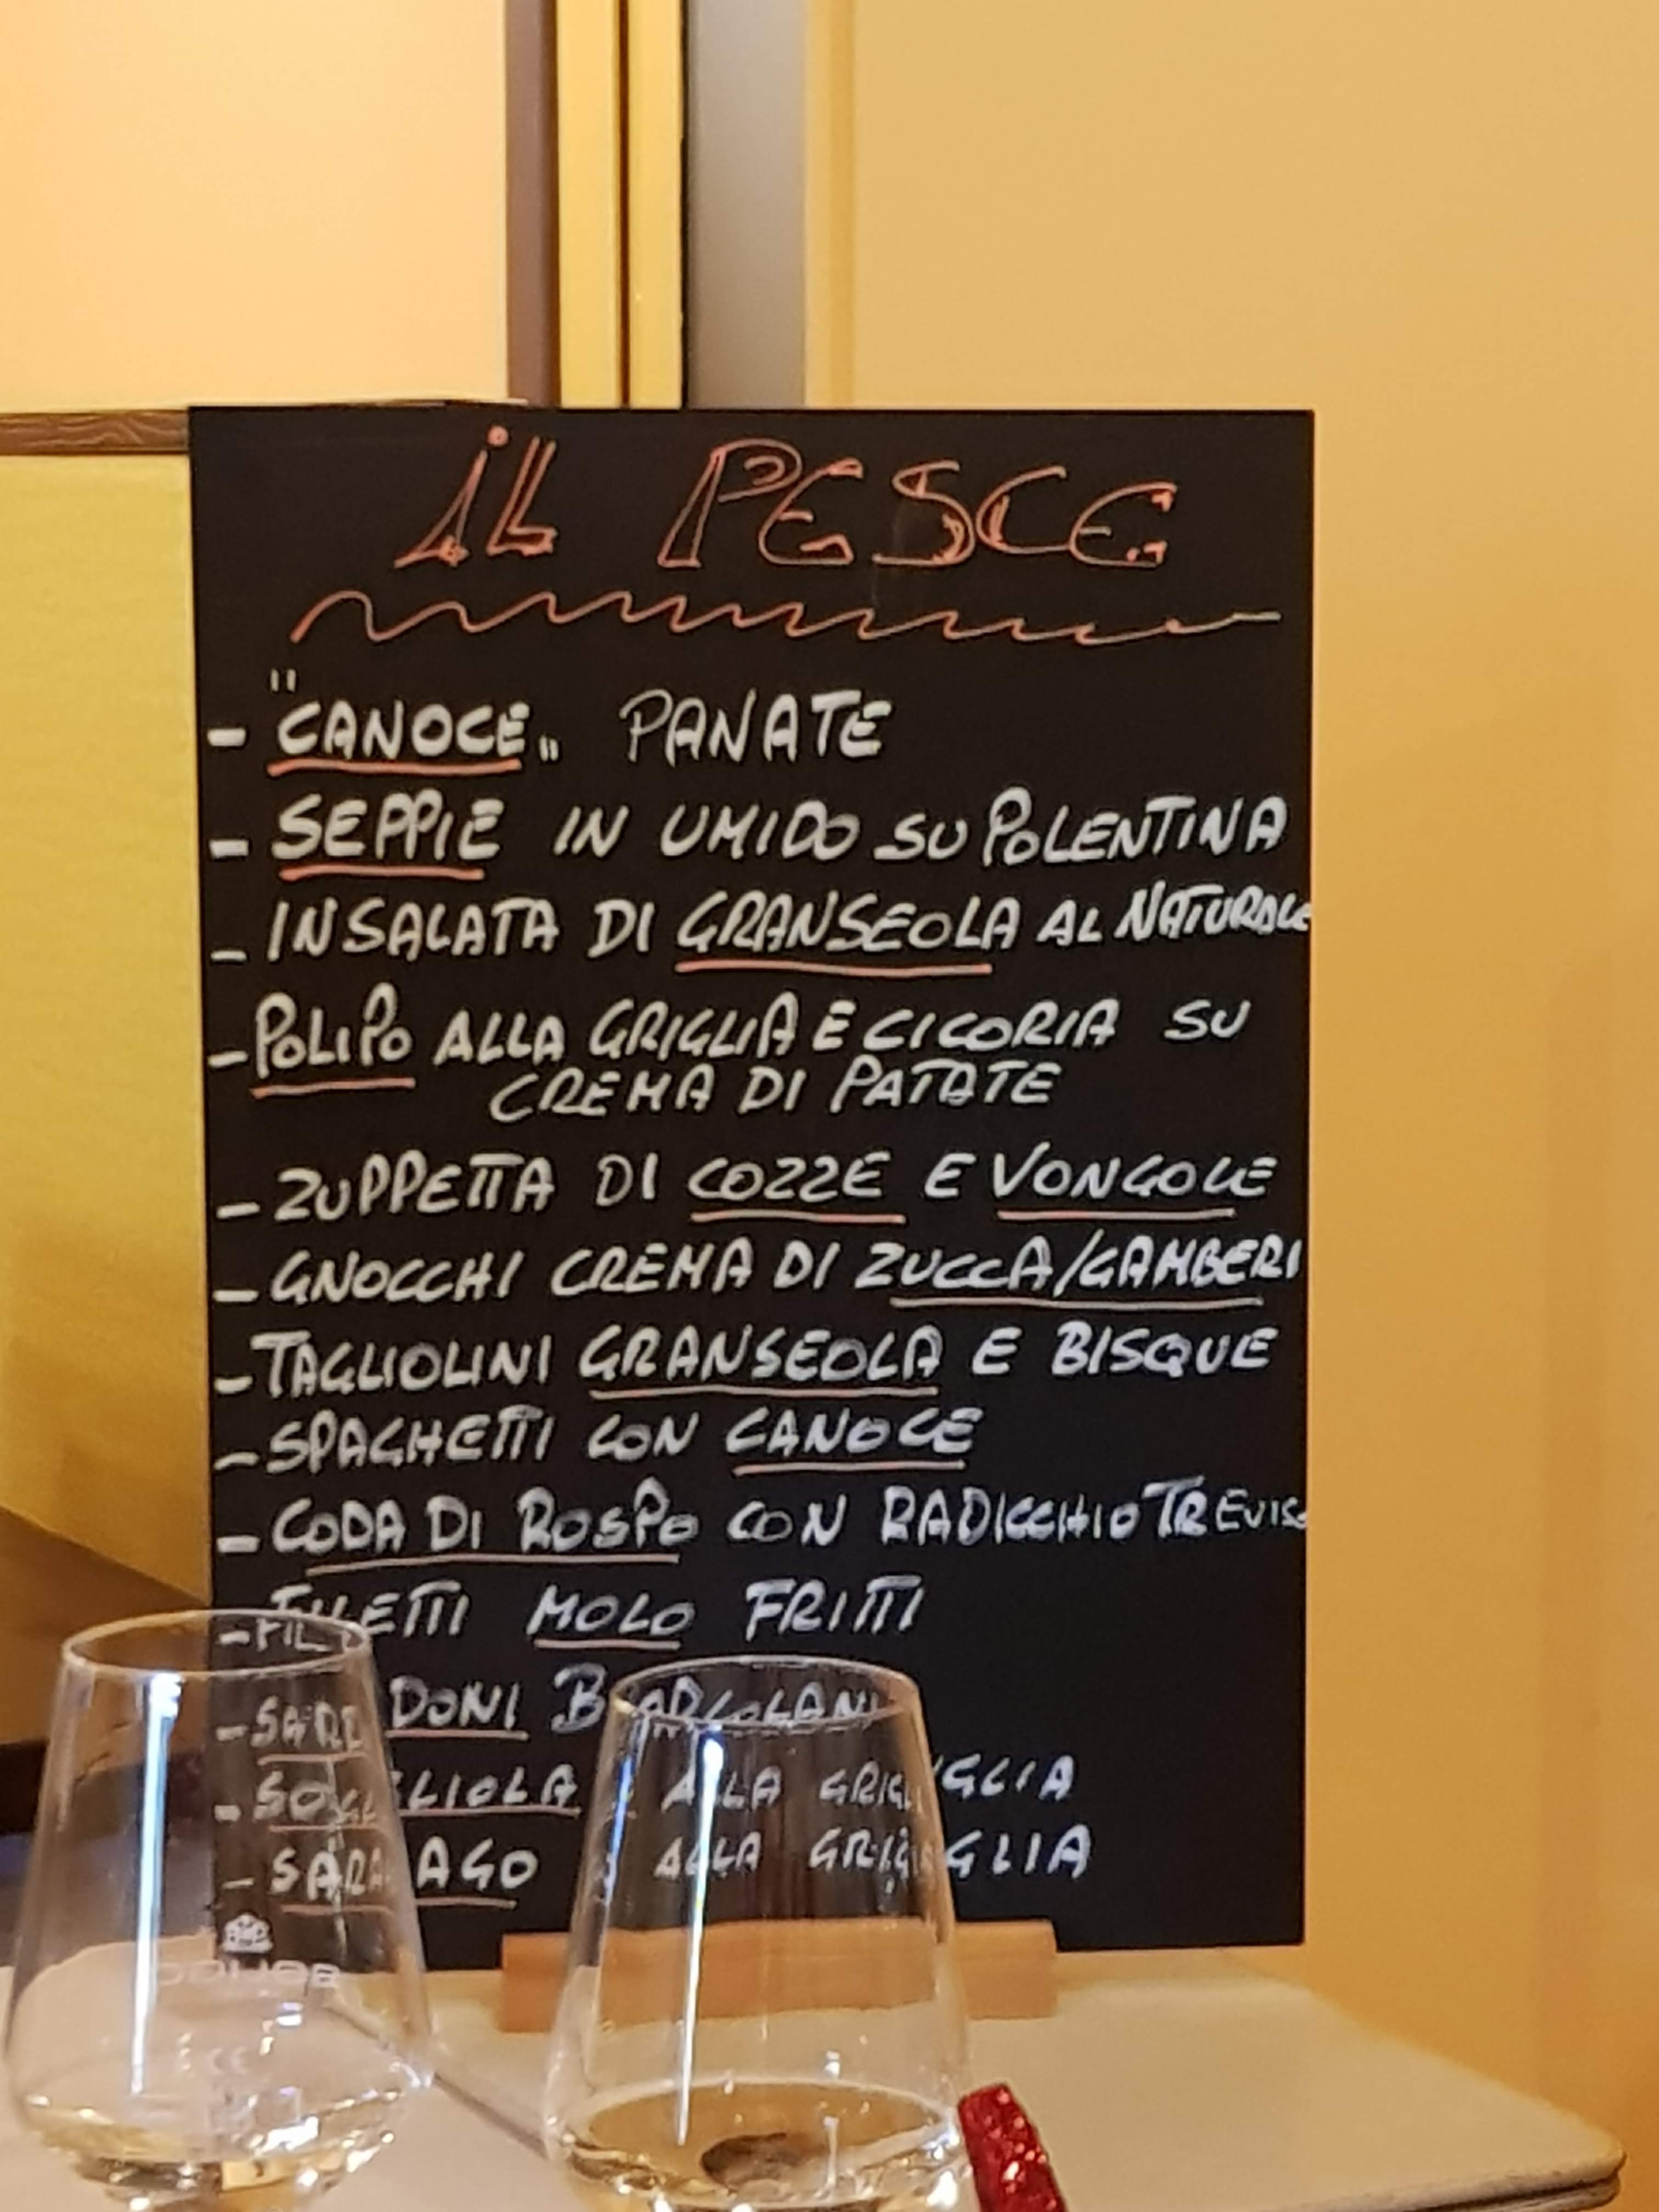 iL PESCE
- "CANOCE„ PANATE
- SEPPIE IN UMIDO SU POLENTINA
- INSALATA DI GRANSEOLA AL NATURALE
- POLIPO ALLA GRIGLIA E CICORIA SU
CREMA DI PATATE
- ZUPPETTA DI COZZE E VONGOLE
- GNOCCHI CREMA DI ZUCCA/GAMBERI
- TAGLIOLINI GRANSEOLA E BISQUE
- SPAGHETTI CON CANOCE
- CODA DI ROSPO CON RADICCHIO TREVISO
- FILETTI MOLO FRITTI
- SARDONI BARCOLANI
- SOGLIOLA ALLA GRIGLIA
- SARAGO ALLA GRIGLIA